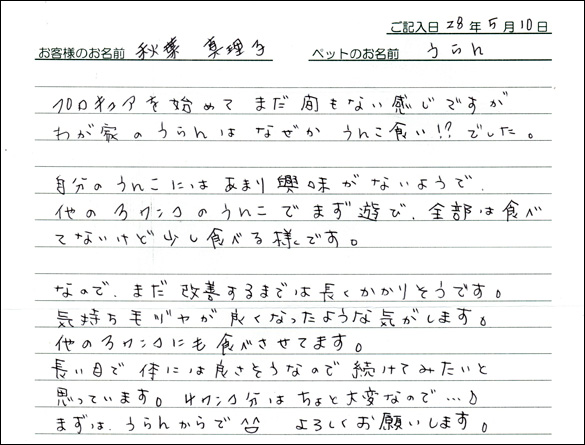 ご記入日 28年5月10日
お客様のお名前 秋葉 真理子 ペットのお名前 うらん
プロキュアを始めて まだ間もない感じですが
わが家のうらんは なぜか うんこ食い!? でした。
自分のうんこには あまり興味がないようで、
他の3ワンコのうんこでまず遊び、全部は食べ
てないけど少し食べる様です。
なので、まだ改善するまでは長くかかりそうです。
気持ち毛ヅヤが良くなったような気がします♪
他の3ワンコにも食べさせてます。
長い目で 体には良さそうなので 続けてみたいと
思っています。4ワンコ分はちょと大変なので…♪
まずは、うらんからで よろしくお願いします。